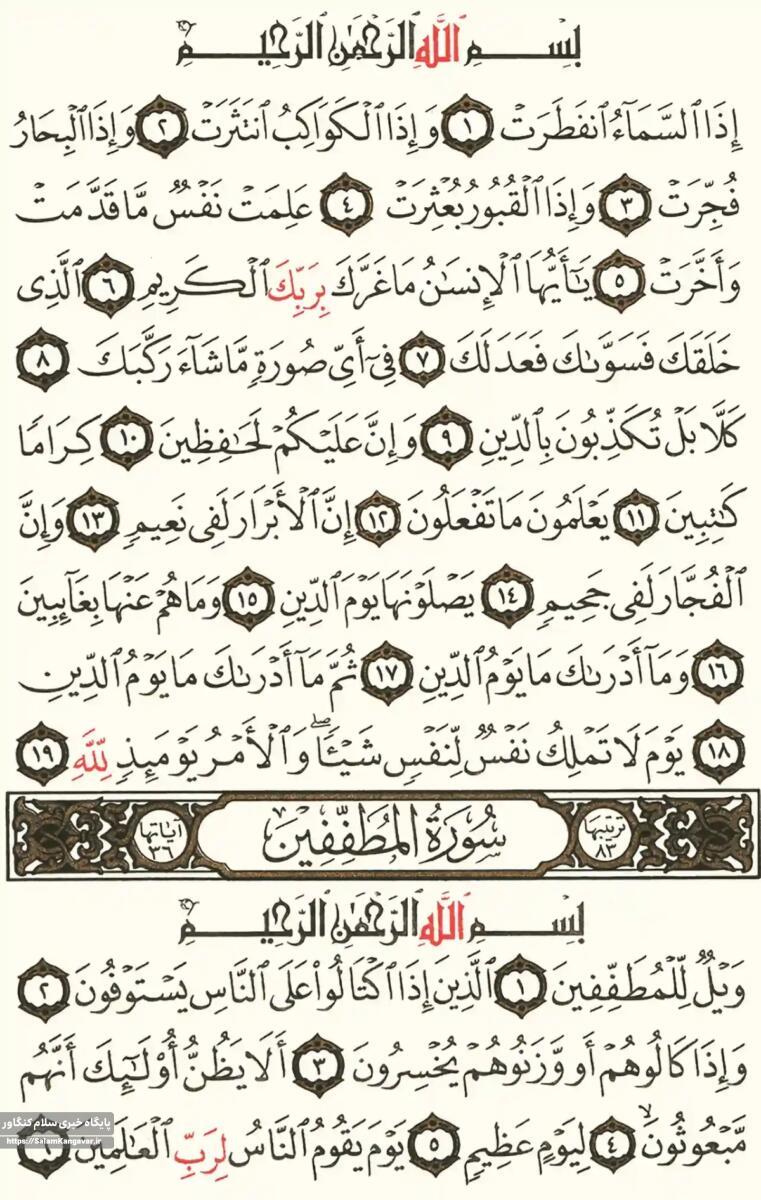 بِسْمِ ٱللَّهِ ٱلرَّحْمَٰنِ ٱلرَّحِيمِ
إِذَا ٱلسَّمَآءُ ٱنفَطَرَتْ ١ وَإِذَا ٱلْكَوَاكِبُ ٱنتَثَرَتْ ٢ وَإِذَا ٱلْبِحَارُ
فُجِّرَتْ ٣ وَإِذَا ٱلْقُبُورُ بُعْثِرَتْ ٤ عَلِمَتْ نَفْسٌ مَّا قَدَّمَتْ
وَأَخَّرَتْ ٥ يَٰٓأَيُّهَا ٱلْإِنسَٰنُ مَا غَرَّكَ بِرَبِّكَ ٱلْكَرِيمِ ٦ ٱلَّذِى
خَلَقَكَ فَسَوَّىٰكَ فَعَدَلَكَ ٧ فِىٓ أَىِّ صُورَةٍ مَّا شَآءَ رَكَّبَكَ ٨
كَلَّا بَلْ تُكَذِّبُونَ بِٱلدِّينِ ٩ وَإِنَّ عَلَيْكُمْ لَحَٰفِظِينَ ١٠ كِرَامًا
كَٰتِبِينَ ١١ يَعْلَمُونَ مَا تَفْعَلُونَ ١٢ إِنَّ ٱلْأَبْرَارَ لَفِى نَعِيمٍ ١٣ وَإِنَّ
ٱلْفُجَّارَ لَفِى جَحِيمٍ ١٤ يَصْلَوْنَهَا يَوْمَ ٱلدِّينِ ١٥ وَمَا هُمْ عَنْهَا بِغَآئِبِينَ
١٦ وَمَآ أَدْرَىٰكَ مَا يَوْمُ ٱلدِّينِ ١٧ ثُمَّ مَآ أَدْرَىٰكَ مَا يَوْمُ ٱلدِّينِ
١٨ يَوْمَ لَا تَمْلِكُ نَفْسٌ لِّنَفْسٍ شَيْـًٔا ۖ وَٱلْأَمْرُ يَوْمَئِذٍ لِّلَّهِ ١٩
ترتيبها ٨٣ سُورَةُ المُطَفِّفِينَ آياتها ٣٦
بِسْمِ ٱللَّهِ ٱلرَّحْمَٰنِ ٱلرَّحِيمِ
وَيْلٌ لِّلْمُطَفِّفِينَ ١ ٱلَّذِينَ إِذَا ٱكْتَالُوا۟ عَلَى ٱلنَّاسِ يَسْتَوْفُونَ ٢
وَإِذَا كَالُوهُمْ أَو وَّزَنُوهُمْ يُخْسِرُونَ ٣ أَلَا يَظُنُّ أُو۟لَٰٓئِكَ أَنَّهُم
مَّبْعُوثُونَ ۙ ٤ لِيَوْمٍ عَظِيمٍ ٥ يَوْمَ يَقُومُ ٱلنَّاسُ لِرَبِّ ٱلْعَٰلَمِينَ ٦
پایگاه خبری سلام کنگاور
https://SalamKangavar.ir